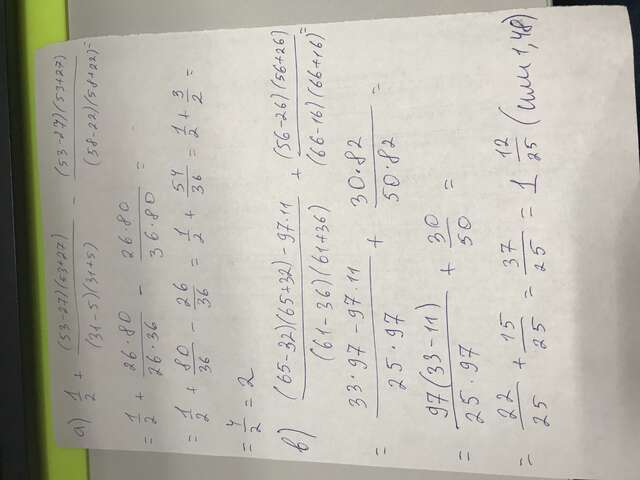 а) 1/2 + (53-27)(53+27)/(31-5)(31+5) - (53-27)(53+27)/(58-22)(58+22) =
= 1/2 + 26·80/26·36 - 26·80/36·80 =
= 1/2 + 80/36 - 26/36 = 1/2 + 54/36 = 1/2 + 3/2 =
= 4/2 = 2
в) (65-32)(65+32)-97·11/(61-36)(61+36) + (56-26)(56+26)/(66-16)(66+16) =
= 33·97-97·11/25·97 + 30·82/50·82 =
= 97(33-11)/25·97 + 30/50 =
= 22/25 + 15/25 = 37/25 = 1 12/25 (или 1,48)